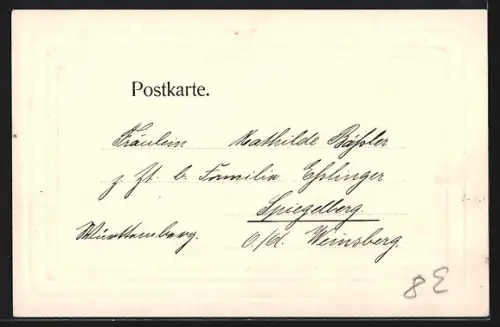 Postkarte.
Fräulein Mathilde Bäßler
z. Zt. b. Familie Eßlinger
Spiegelberg
Württemberg. O./A. Weinsberg.
8E